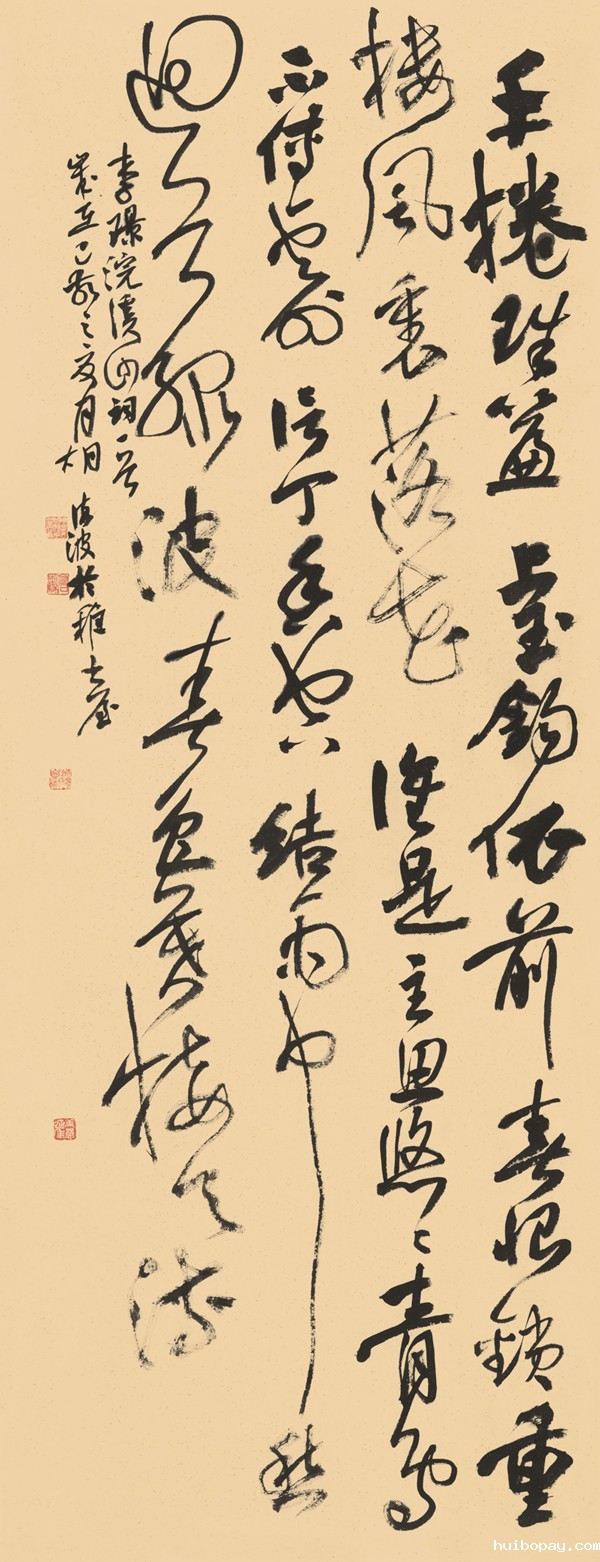 手捲珠簾上玉鈎依前春恨鎖重
樓風裏落花誰是主思悠〻青鳥
不傳雲外信丁香空結雨中愁
迴首綠波春色暮接天流
李璟浣溪沙詞一首
歲在乙巳之夏月 波於雅士
huibopay.com